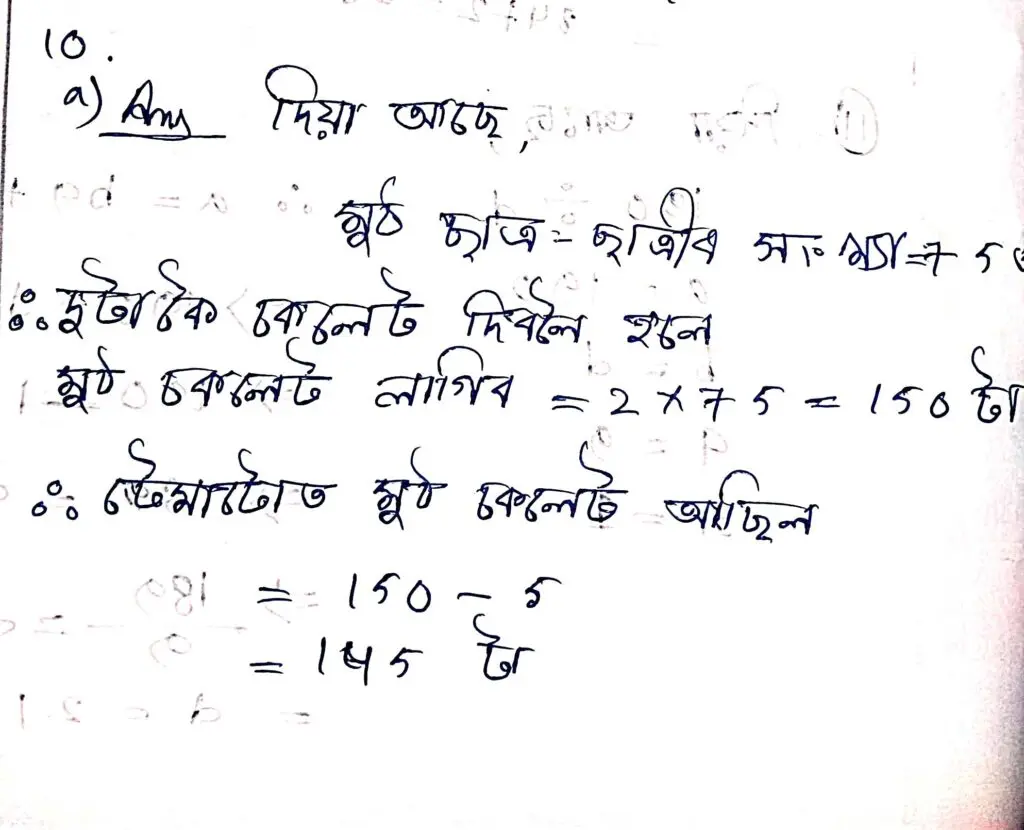 10.
a) Ans দিয়া আছে,
মুঠ ছাত্ৰ-ছাত্ৰীৰ সংখ্যা=75
∴ দুটাকৈ চকলেট দিবলৈ হলে
মুঠ চকলেট লাগিব = 2 × 75 = 150 টা
∴ টেমাটোত মুঠ চকলেট আছিল
= 150 - 5
= 145 টা